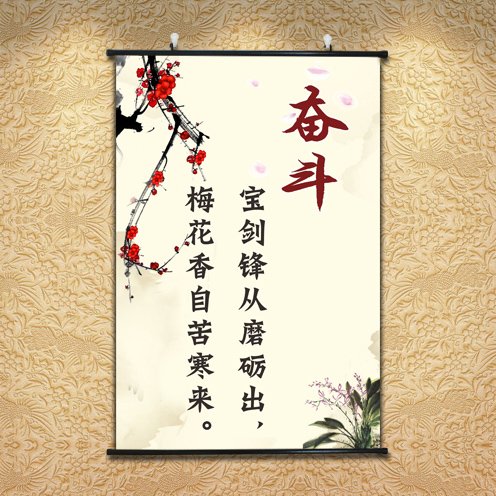 奋斗
宝剑锋从磨砺出，
梅花香自苦寒来。